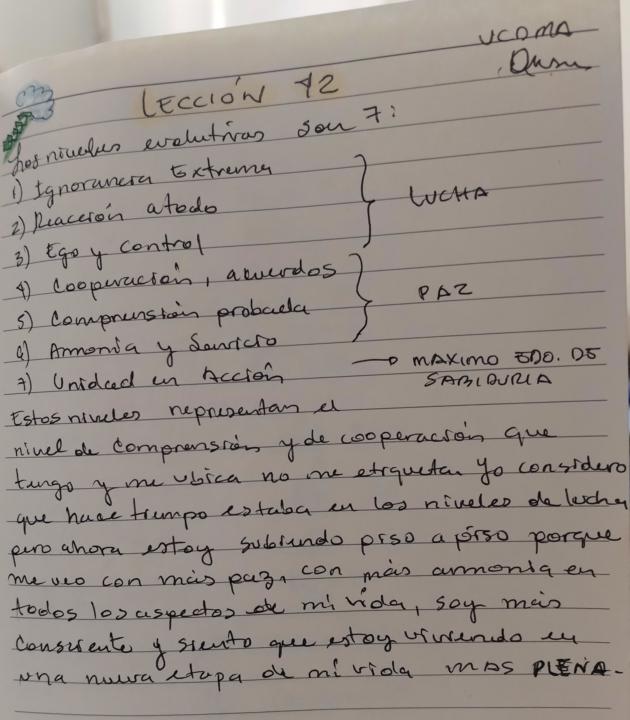 UCDMA
LECCIÓN 42
Los niveles evolutivos son 7:
1) Ignorancia Extrema
2) Reacción a todo
3) Ego y control
LUCHA
4) Cooperación, acuerdos
5) Comprensión probada
6) Armonía y Servicio
PAZ
7) Unidad en Acción → MAXIMO EDO. DE
SABIDURIA
Estos niveles representan el
nivel de comprensión y de cooperación que
tengo y me ubica no me etiqueta. Yo considero
que hace tiempo estaba en los niveles de lucha
pero ahora estoy subiendo piso a piso porque
me veo con más paz, con más armonía en
todos los aspectos de mi vida, soy más
consciente y siento que estoy viviendo en
una nueva etapa de mi vida mas PLENA.